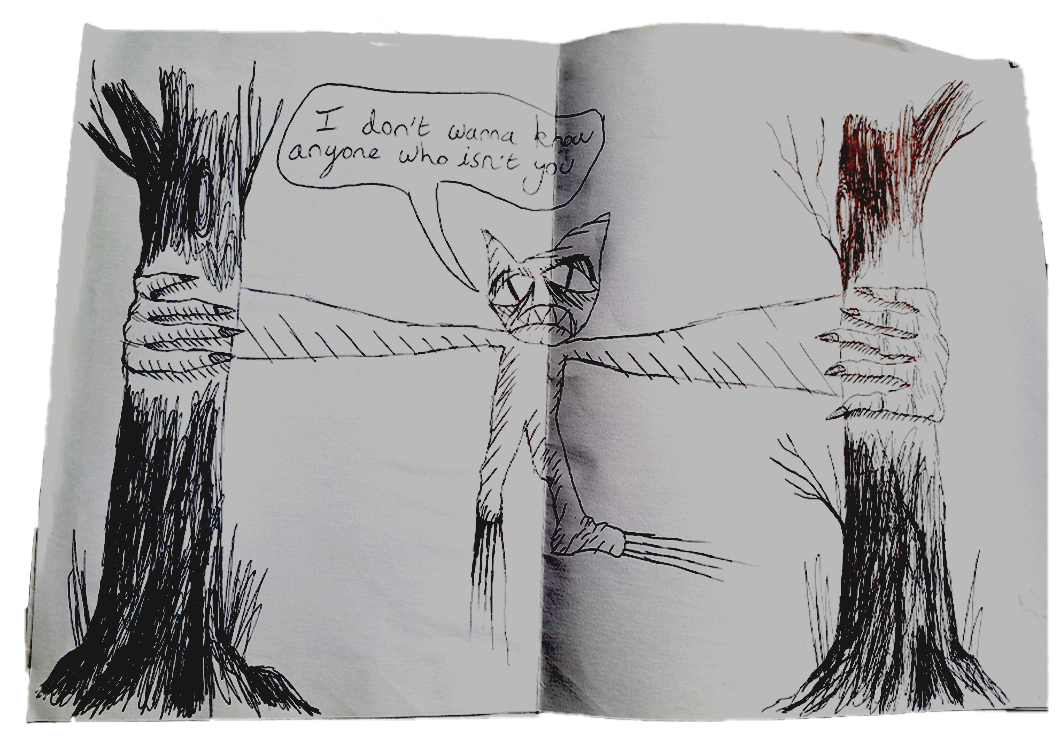 I don't wanna know
anyone who isn't you